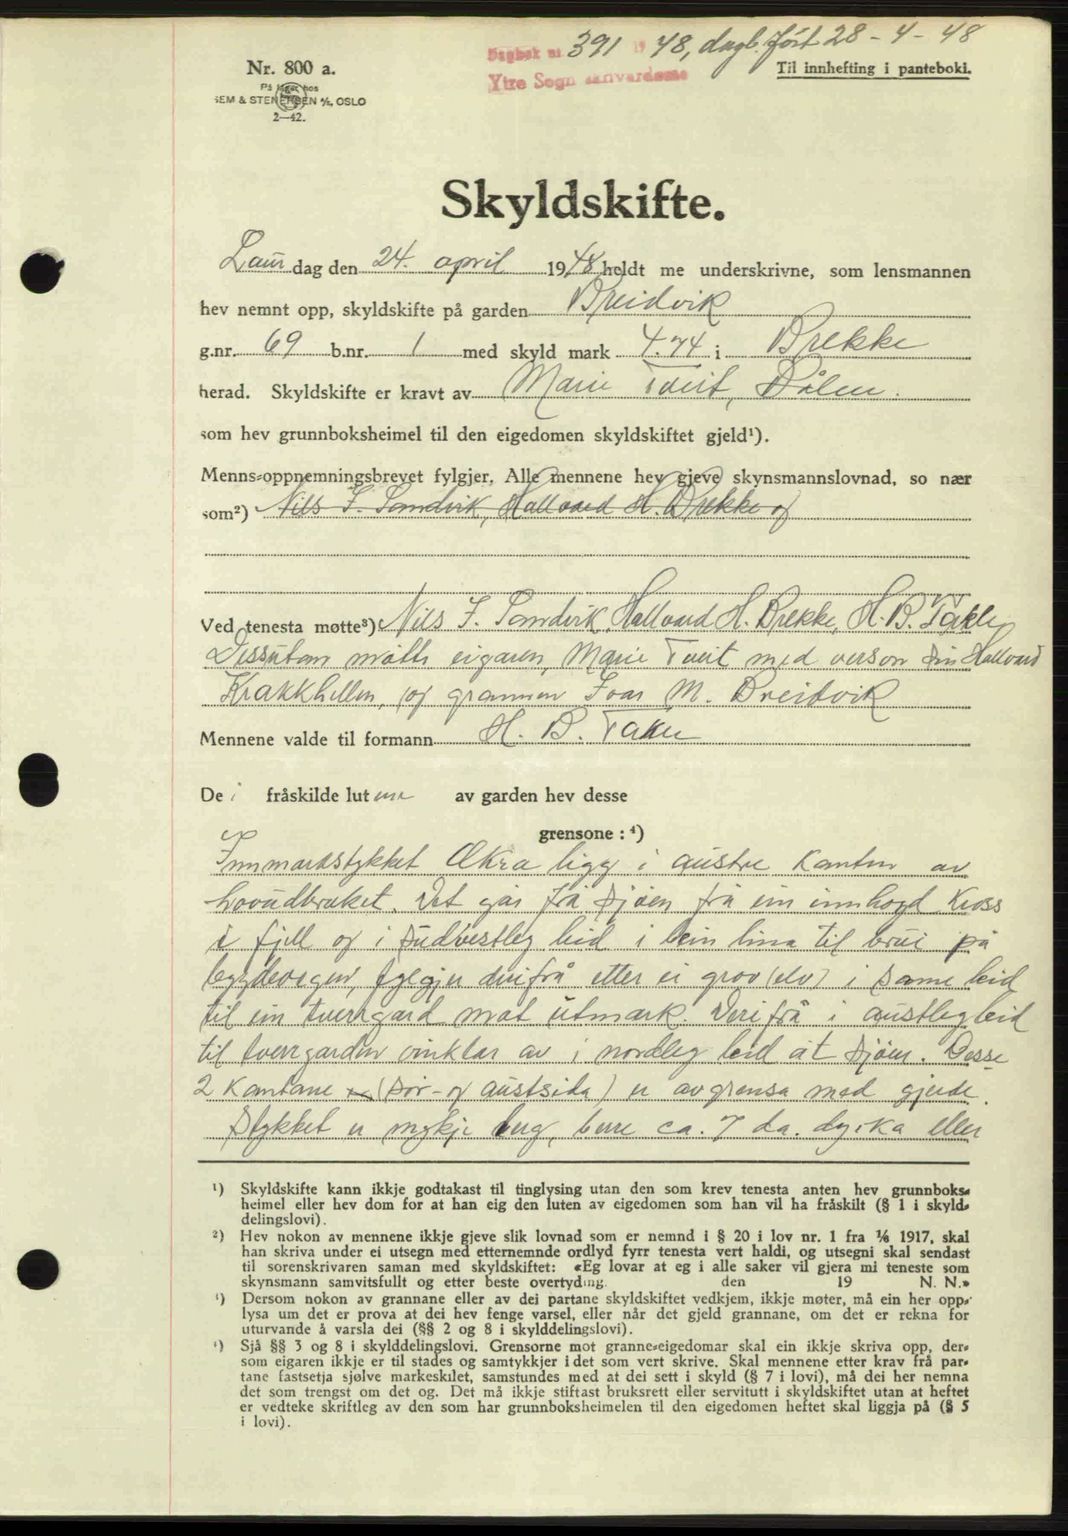 Dagbok nr. 391 19 48, dagb. ført 28-4-48
Ytre Sogn
Nr. 800 a.
Til innhefting i panteboki.
På lager hos
SEM & STENERSEN A/S, OSLO
2—42.
Skyldskifte.
Laur dag den 24. april 1948 heldt me underskrivne, som lensmannen
hev nemnt opp, skyldskifte på garden Breidvik
g.nr. 69 b.nr. 1 med skyld mark 4.74 i Brekke
herad. Skyldskifte er kravt av Marie Tveit, Bålen.
som hev grunnboksheimel til den eigedomen skyldskiftet gjeld¹).
Menns-oppnemningsbrevet fylgjer. Alle mennene hev gjeve skynsmannslovnad, so nær
som²) Nils I. Sandvik, Hallvard H. Brekke og
Ved tenesta møtte³) Nils I. Sandvik, Hallvard H. Brekke, H. B. Takle
Dessutan møtte eigaren, Marie Tveit med verson sin Hallvard
Krakkhellen, og grannen Ivar M. Breidvik
Mennene valde til formann H. B. Takle
De i fråskilde lutene av garden hev desse
grensone : ⁴)
Innmarkstykket Økra ligg i austre kanten av
hovudbruket. Det går frå sjøen frå ein innhogd kross
i fjell og i sudvestleg leid i bein lina til brui på
bygdevegen, fylgjer derifrå etter ei grov (elv) i same leid
til ein tverrgard mot utmark. Derifrå i austleg leid
til tverrgarden vinklar av i nordleg leid åt sjøen. Desse
2 kantane (sør- og austsida) er avgrensa med gjerde.
Stykket er mykje berg, bere ca. 7 da. dyrka eller
¹) Skyldskifte kann ikkje godtakast til tinglysing utan den som krev tenesta anten hev grunnboks-
heimel eller hev dom for at han eig den luten av eigedomen som han vil ha fråskilt (§ 1 i skyld-
delingslovi).
²) Hev nokon av mennene ikkje gjeve slik lovnad som er nemnd i § 20 i lov nr. 1 fra 1/6 1917, skal
han skriva under ei utsegn med etternemnde ordlyd fyrr tenesta vert haldi, og utsegni skal sendast
til sorenskrivaren saman med skyldskiftet: «Eg lovar at eg i alle saker vil gjera mi teneste som
skynsmann samvitsfullt og etter beste overtyding. den 19 N. N.»
³) Dersom nokon av grannane eller av dei partane skyldskiftet vedkjem, ikkje møter, må ein her opp-
lysa um det er prova at dei hev fenge varsel, eller når det gjeld grannane, om det er rekna for
uturvande å varsla dei (§§ 2 og 8 i skylddelingslovi).
⁴) Sjå §§ 3 og 8 i skylddelingslovi. Grensorne mot granne-eigedomar skal ein ikkje skriva opp, der-
som eigaren ikkje er til stades og samtykkjer i det som vert skrive. Skal mennene etter krav frå par-
tane fastsetja sjølve markeskilet, samstundes med at dei sett i skyld (§ 7 i lovi), må dei her nemna
det som trengst om det og. Det må ikkje stiftast bruksrett eller servitutt i skyldskiftet utan at heftet
er vedteke skriftleg av den som har grunnboksheimelen til den eigedomen heftet skal liggja på (§ 5
i lovi).